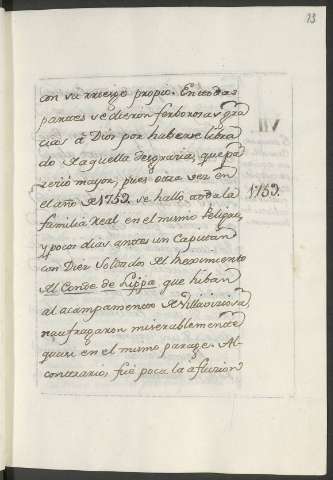 13
con su riesgo propio. En todas
partes se dieron ferborosas gra
cias á Dios por haberse libra
do de aquella desgracia, que pa
reció mayor, pues otra vez en
el año de 1759. se halló toda la
familia Real en el mismo Peligro,
y pocos dias antes un Capitan
con Diez Soldados del Regimiento
del Conde de Lippa que hiban
al acampamento de Villaviciosa
naufragaron miserablemente
quasi en el mismo parage. Al
contrario, fué poca la afluxion
1759.
VII